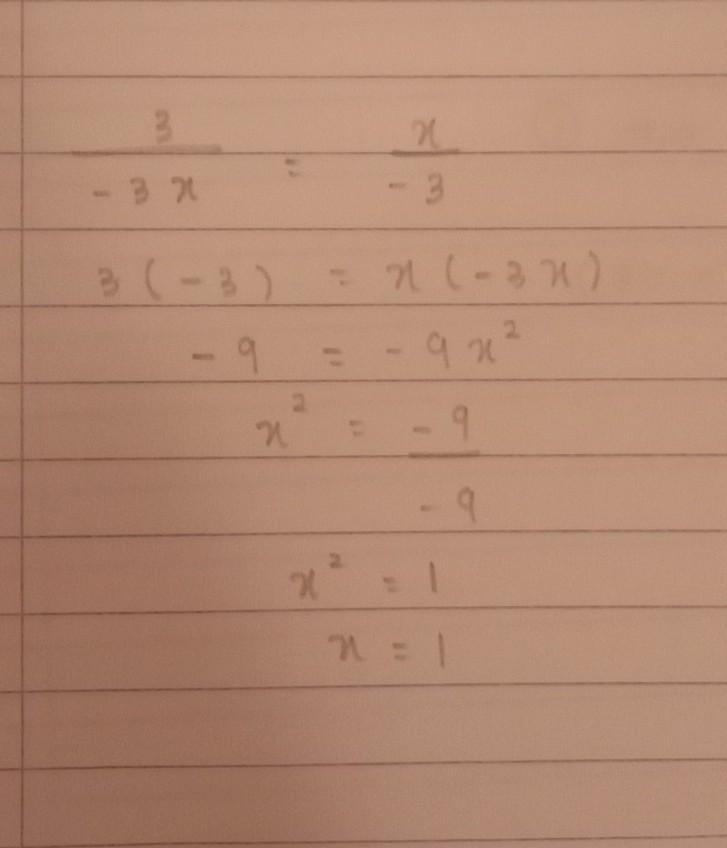 3/(-3x) = x/(-3)
3(-3) = x(-3x)
-9 = -9x²
x² = -9/-9
x² = 1
x = 1